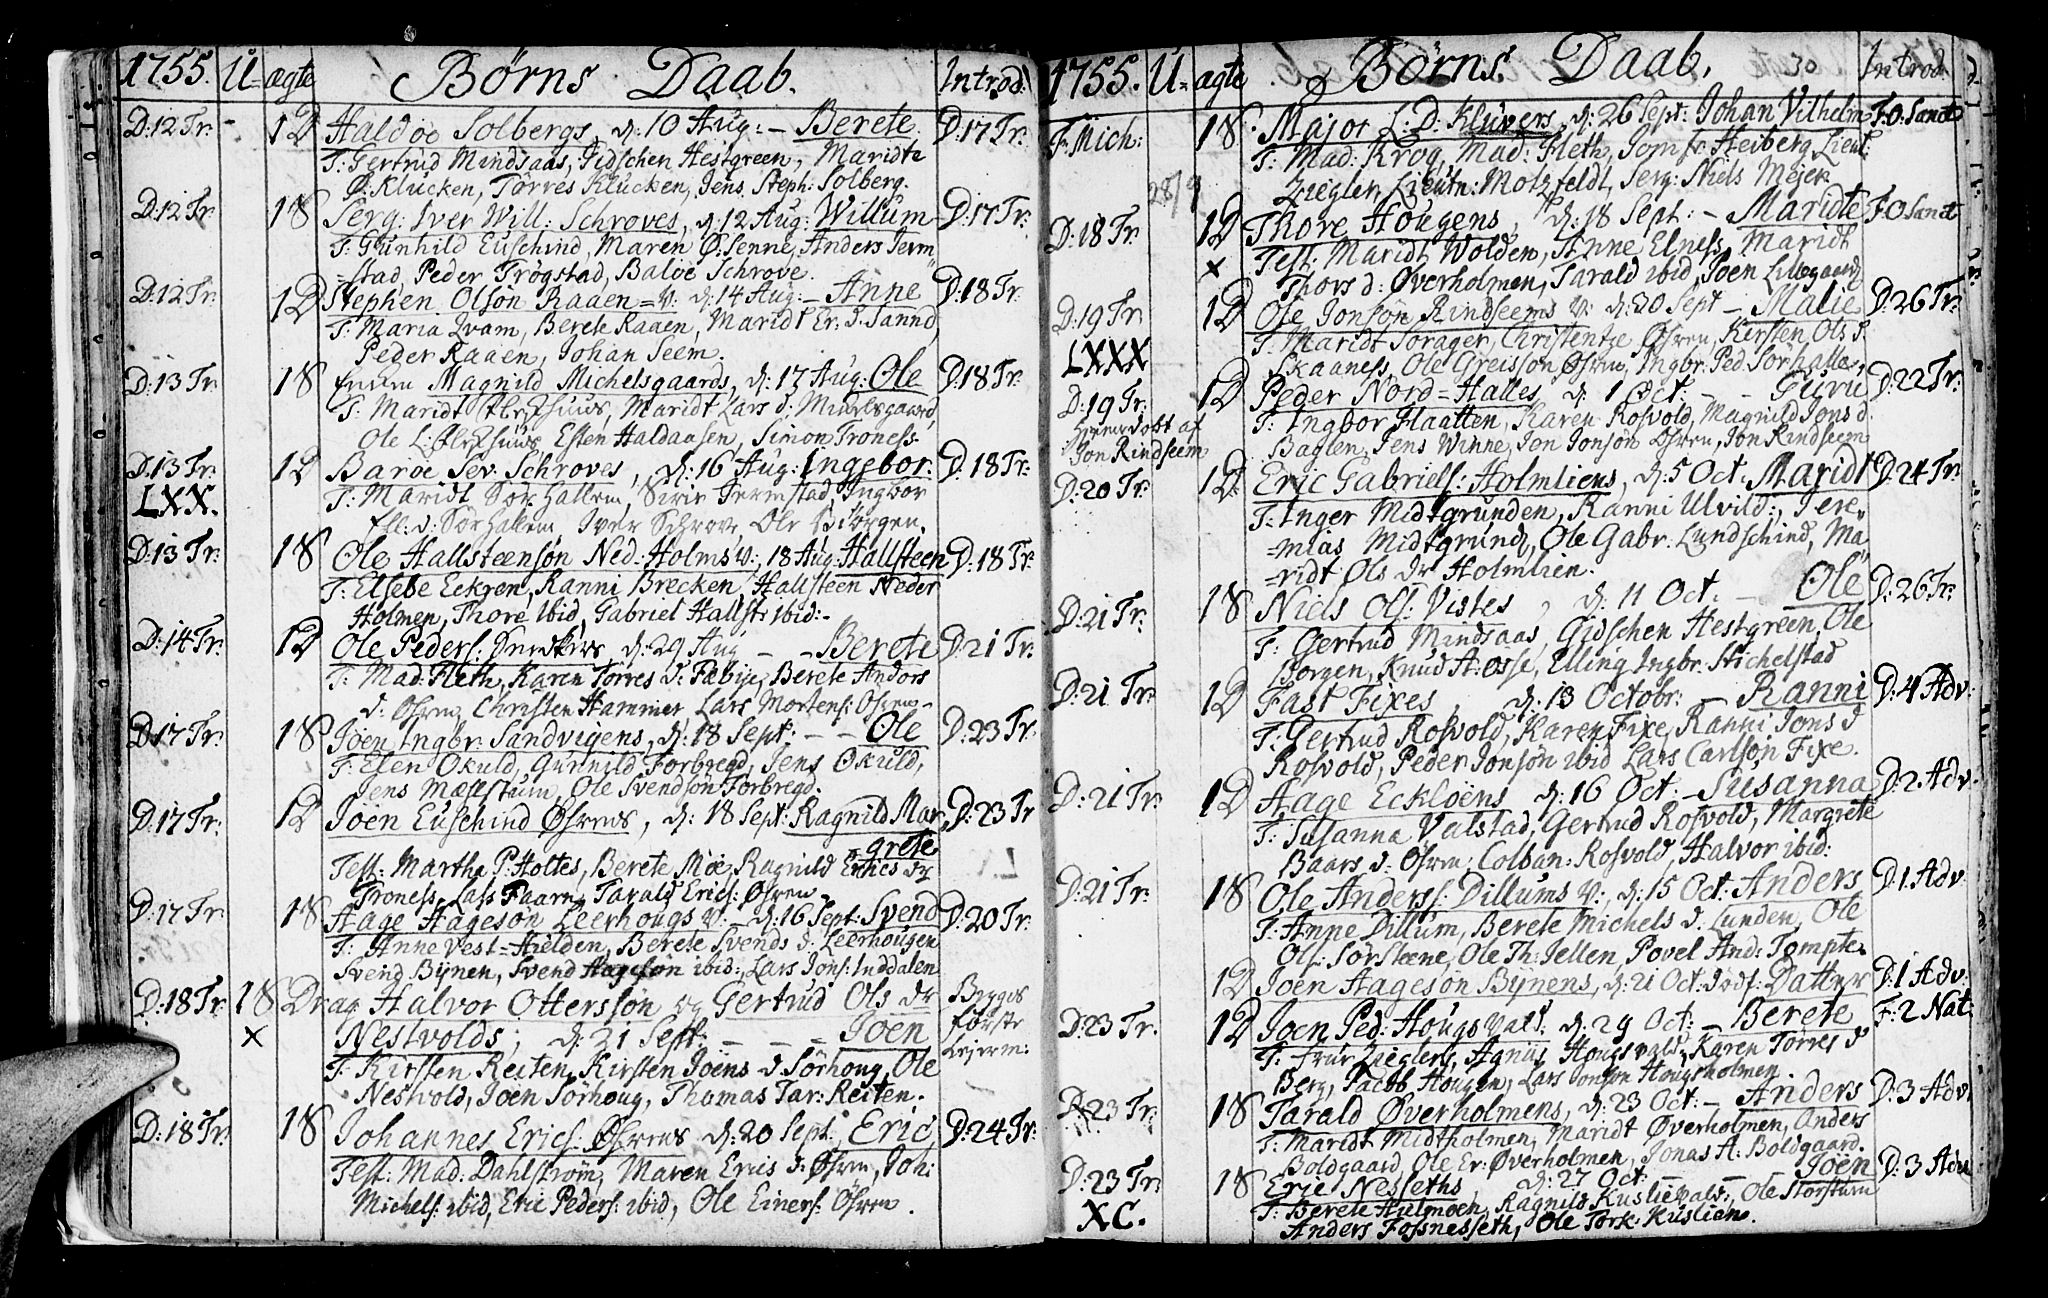 1755. U= ægte Børns Daab. Introd:
D:12 Tr. - 1D Haldoe Solbergs, d: 10 Aug: - Berete. D:17 Tr:
T: Gertrud Mindsaas, Gidschen Hestgreen, Maridt
Ø: Klucken, Törres Klucken, Jens Steph: Solberg.
D:12 Tr 1S Serg: Iver Will: Schroves, d: 12 Aug: Willum D:17 Tr:
T: Gunhild Euschind, Maren Ø:senne, Anders Jerm
=stad, Peder Trögstad, Baloe Schrove.
D:12 Tr: 1D Stephen Olsön Raaen=v: d: 14 Aug: - Anne D:18 Tr:
T: Maria Qvam, Berete Raaen, Maridt Er: d: Sannd,
Peder Raaen, Johan Seem.
D:13 Tr: 1S Magnild Michelsgaards, d: 17 Aug: Ole D:18 Tr:
T: Maridt Maridt Lars d: Michelsgaard,
Ole L: Esten Haldaasen, Simon Troness.
D:13 Tr: 1D Baroe Sev: Schroves, d: 16 Aug: Ingebor: D:18 Tr:
LXX. T: Maridt Sör Hallem, Siri Jermstad, Ingbor
Ell: d: Sör Hallem Iver Schrove, Ole Biörgen.
D:13 Tr: 1S Ole Hallsteensön Ned-Holms v:, 18 Aug: Hallsteen D:18 Tr:
T: Elsebe Eckren, Ranni Brecken, Hallsteen Neder
Holmen, Thore ibid, Gabriel Hallst: ibid:-
D:14 Tr: 1D Ole Peders: d: 29 Aug - - Berete D:21 Tr:
T: Mad: Fleth, Karen Törres d: Fæbye, Berete Andors
d: Öhren, Christen Hammer Lars Mortens: Öhren-
D:17 Tr: 1S Joen Ingbr: Sandvigens, d: 18 Sept: - - Ole D:23 Tr:
T: Elen Okuld, Gunnild Forbregd, Jens Okuld,
Jens Ole Svendsön Forbregd.
D:17 Tr: 1D Joen Euschind Øhrens, d: 18 Sept: Ragnild Mar D:23 Tr
grete
Test: Martha P: Holtes, Berete Möe, Ragnild Erics dr
Troness, Lars Faarn, Tarald Erics: Øhren
D:17 Tr: 1S Aage Aagesön Leerhougs v: - d: 16 Sept: Svend D:20 Tr:
T: Anne Vest=Hielden, Berete Svends d: Leerhougen
Svend Bÿnen, Svend Aagesön ibid:, Lars Jöns: Inddalen
D:18 Tr 1S Drag Halvor Otterssön og Gertrud Ols dr Begges
× Nestvolds, d: 21 Sept: - - - Joen første
T: Kirsten Reiten, Kirsten Joens d Sörhoug, Ole Lejerm:
Nestvold, Joen Sörhoug, Thomas Tar: Reiten.
D:18 Tr: 1S Johannes Erics: Øhrens d: 20 Sept: Eric D:24 Tr:
Test: Mad: Dahlström, Maren Erics d: Öhren, Joh:
Michels: ibid, Eric Peders: ibid, Ole Einers: Öhren.
1755. U= ægte Børns. Daab. 30 Introd
F: Mich: 1S. Major L: D: Klüvers, d: 26 Sept: Johan Vilhelm F.O. Sanct
T: Mad: Krog, Mad: Fleth, Jomfr Heiberg, Lieut:
28/9 Ziegler, Lieutn: Motzfeldt, Serg: Niels Mejer
D:18 Tr: 1D Thore Hougens, d: 18 Sept: - Maridte F.O Sanct
× Test: Maridt Wolden, Anne Elness, Maridt
Thors d: Øverholmen, Tarald ibid, Joen Lillegaard
D:19 Tr: 1D Ole Jonsön Rindseems v: d: 30 Sept - Malie D:26 Tr:
LXXX T: Maridt Sorager, Christentze Öhren, Kersten Ols d:
Skaaness, Ole Greisson Öhren, Ingbr: Ped: Sorhalla,
D:19 Tr: 1D Peder Nord=Halles, d: 1 Oct: - - Guru D:22 Tr:
Hiemedöbt af T: Ingbor Haatten, Karen Rosvold, Magnild Jons d
Jon Rindseem Baglen, Jens Winne, Jon Jonsön Öhren, Jon Rindseem
D:20 Tr: 1D Eric Gabriels: Holmliens, d: 5 Oct: Maridt D:24 Tr:
T: Inger Midtgrunden, Ranni Ulvild:, Jere=
=mias Midtgrund, Ole Gabr: Lundschind, Ma=
=ridt Ols dr Holmlien.
D:21 Tr: 1S Niels Ols: Vistes, d: 11 Oct. - Ole D:26 Tr:
T: Gertrud Mindsaas, Gidschen Hestgreen, Ole
Borgen, Knud A: Osse, Elling Ingbr: Stichelstad
D:21 Tr: 1D Fast Fixes, d: 13 Octobr: - Ranni D:4 Adv:
T: Gertrud Rosvold, Karen Fixe, Ranni Jons d
Rosvold, Peder Jonsön ibid Lars Carlsön Fixe.
D:21 Tr: 1D Aage Eckloens d: 16 Oct: - Susanna D:2 Adv:
T: Susanna Valstad, Gertrud Rosvold, Margrete
Baars d: Öhren, Colban: Rosvold, Halvor ibid:
D:21 Tr: 1S Ole Anderss: Dillums v:, d: 15 Oct: Anders D:1 Adv:
T: Anne Dillum, Berete Michels d: Lunden, Ole
Ols: Sorsteene, Ole Th: Jellen Povel And: Tompte.
1D Joen Aagesön Bÿnens, d: 21 Oct: Dödf: Datter D:1 Adv:
D:23 Tr: 1D Joen Ped: Hougs vald: d: 29 Oct: - Berete F: 2 Nat:
T: Frur Zieglers, Agnis Hougsvald, Karen Törres d
Berg, Jacob Hougen, Lars Jonsön Hougsholmen
D:23 Tr: 1S Tarald Øverholmens, d: 23 Oct: - Anders D:3 Adv
T: Maridt Midtholmen, Maridt Øverholmen, Anders
Boldgaard, Ole Er: Øverholmen, Jonas A: Boldgaard.
D:23 Tr: 1S Eric Nesseths, d: 27 Oct - Joen D:3 Adv
XC. T: Berete Hulmoen, Ragnild Kuslievald:, Ole Storstum
Anders Fossnesseth, Ole Tork: Kuslien.